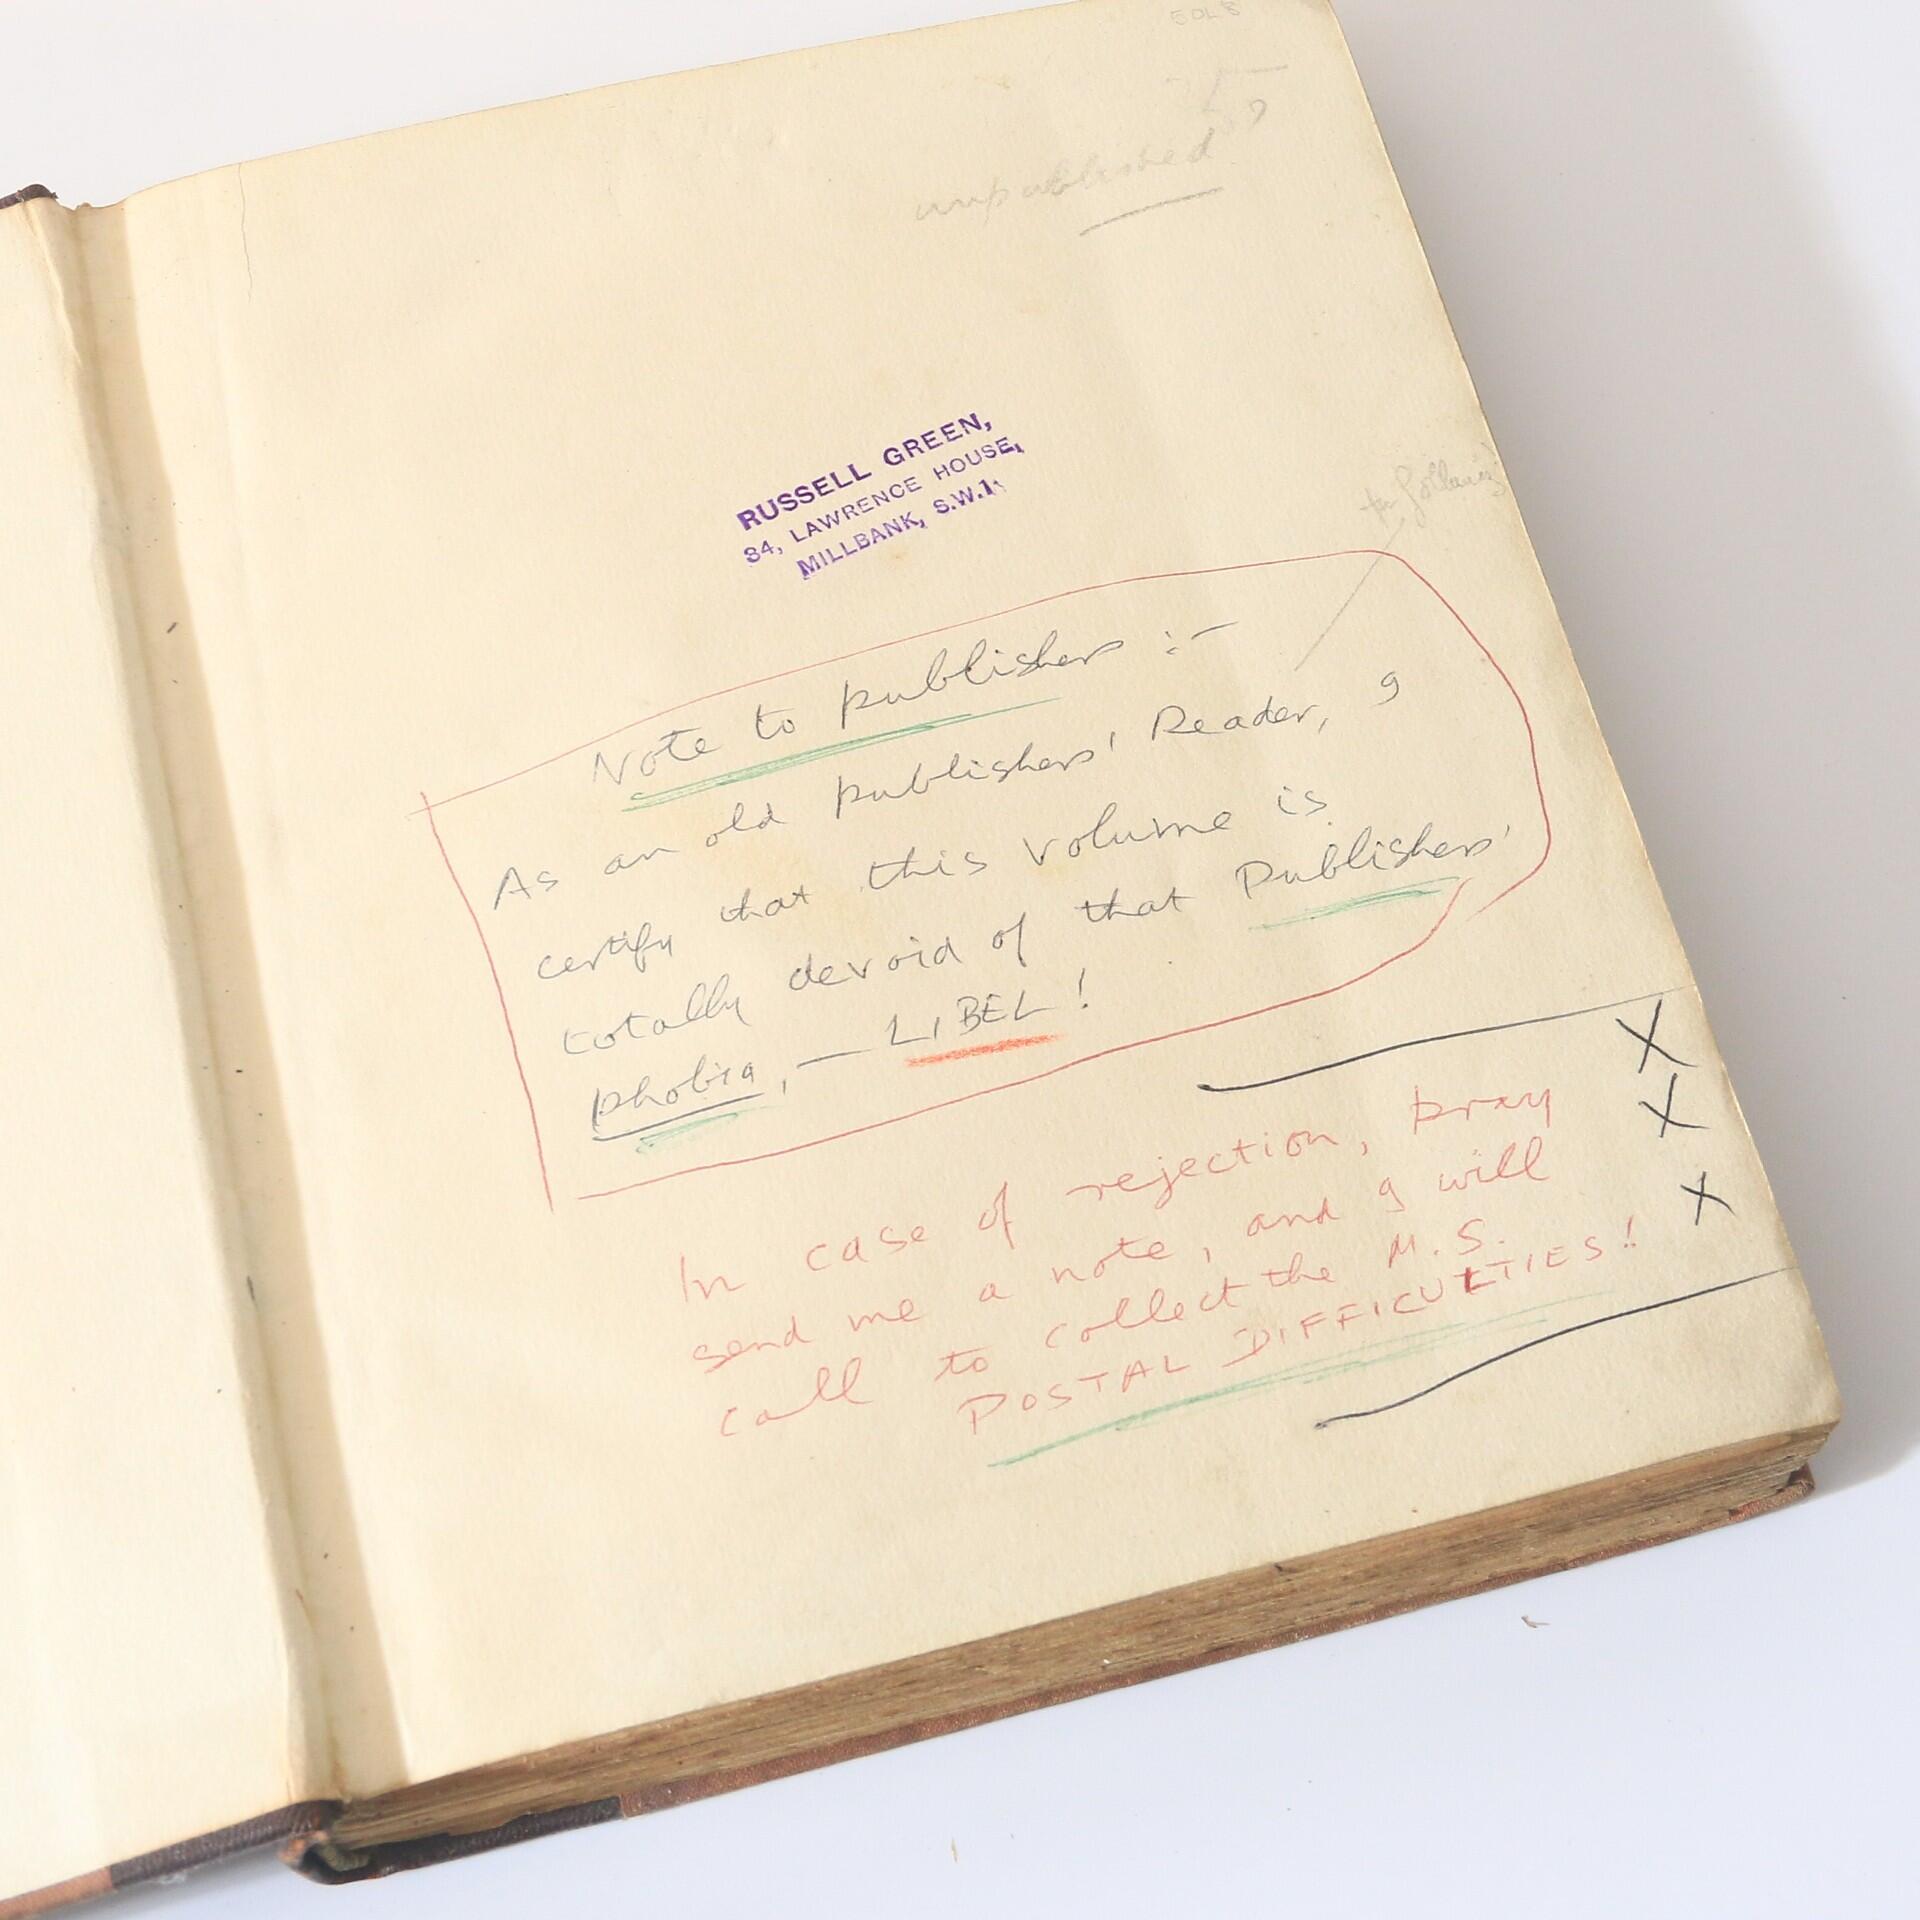 EOL8
unpublished
RUSSELL GREEN,
84, LAWRENCE HOUSE,
MILLBANK, S.W.1.
to Gollancz
Note to publishers :-
As an old publishers' Reader, I
certify that this volume is
totally devoid of that Publishers'
phobia, — LIBEL!
X
X
X
In case of rejection, pray
send me a note, and I will
call to collect the M.S.
POSTAL DIFFICULTIES!